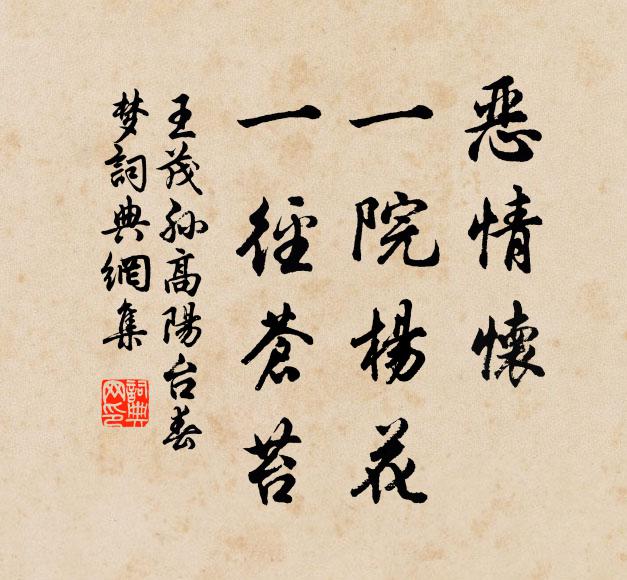 惡情懷
一院楊花
一徑蒼苔
王茂孙高陽台春
梦詞典網集
詞典
网印